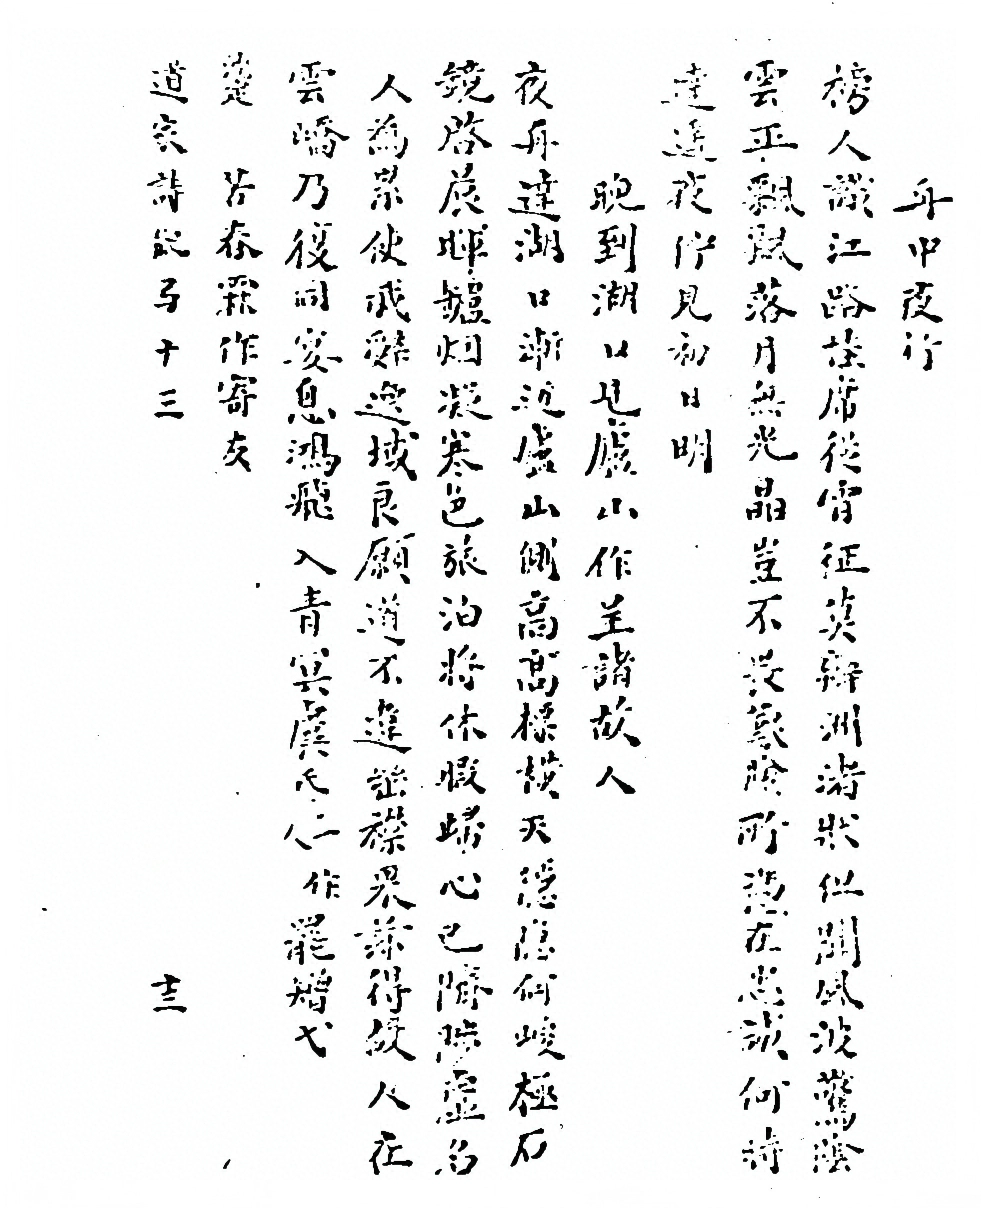 舟中夜行
榜人識江路掛席從宵征莫辨洲渚狀但聞風波驚陰
雲平飄飖落月無光晶豈不畏艱險所憑在忠誠何時
達遙夜佇見初日明
晚到湖口見廬山作呈諸故人
夜舟達湖口漸近廬山側高高標橫天隱隱何峻極石
鏡啓晨暉罏烟凝寒色旅泊將休暇歸心已隮陟虛名
人為累使戎辭逸域良願道不違襟界兼得故人在
雲嶠乃復同宴息鴻飛入青冥虞氏仁作罷矰弋
楚 苦春霖作寄友
道家詩紀弓十三 十三